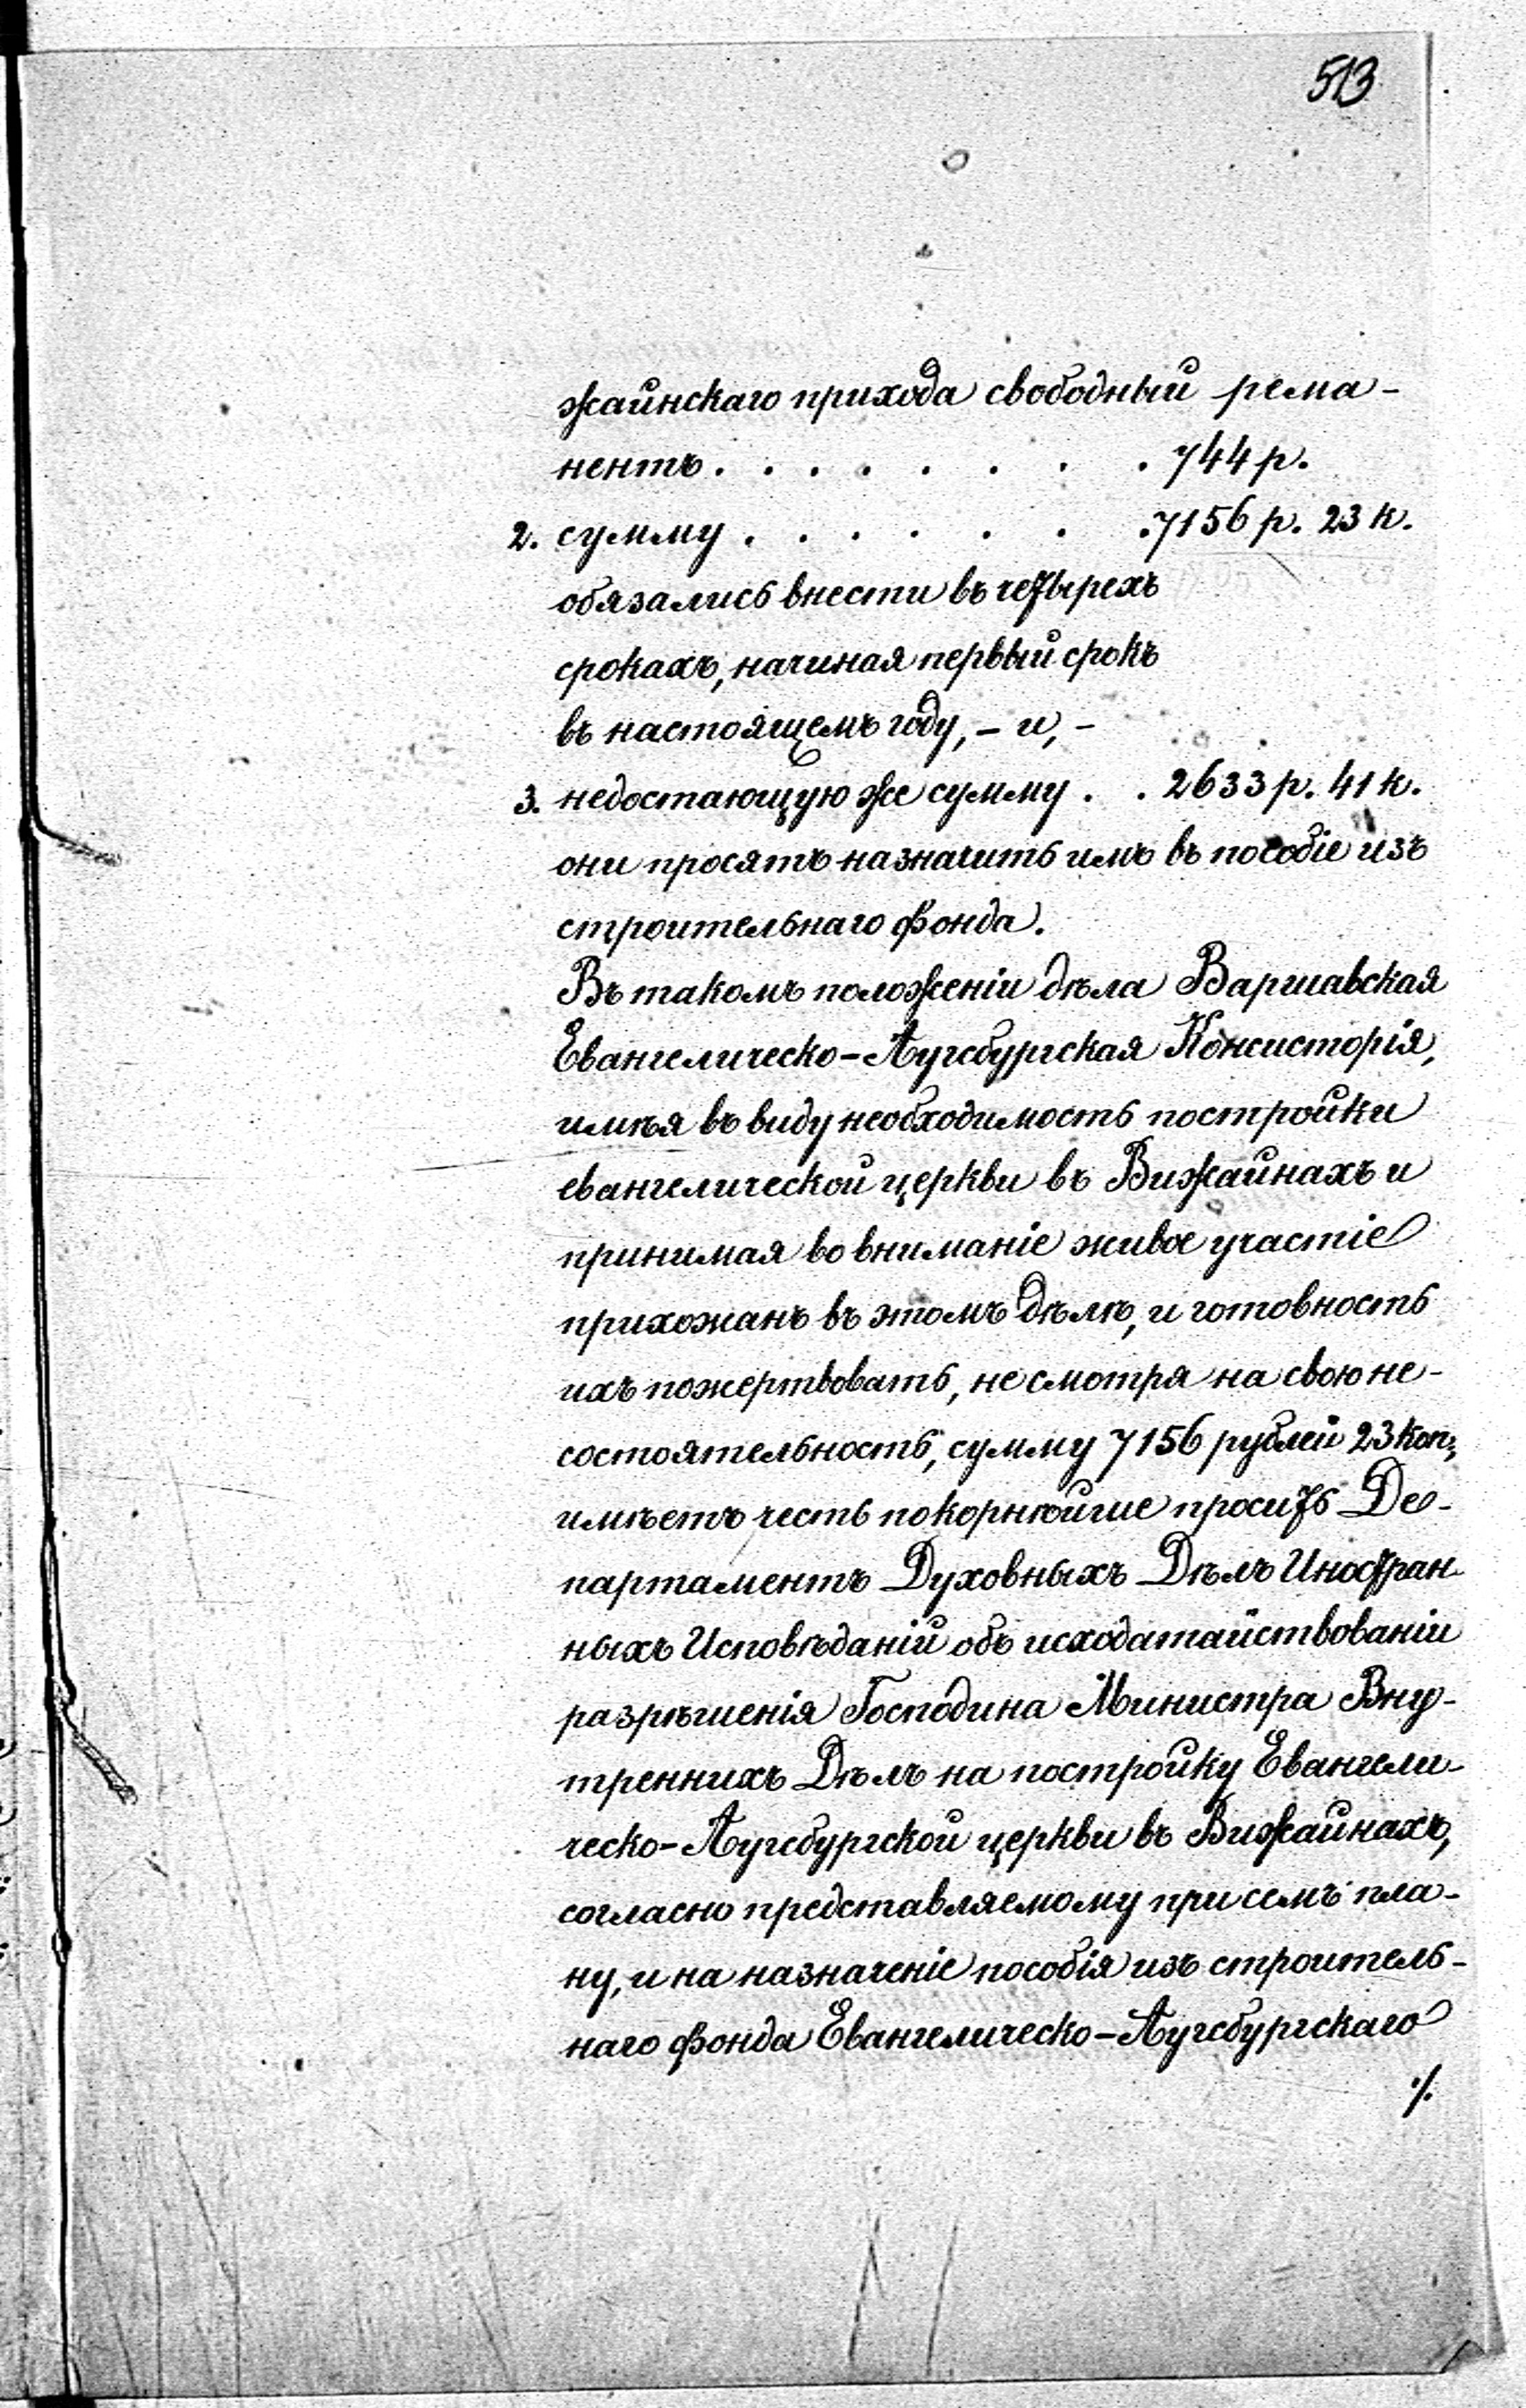 513
жаинскаго прихода свободный рема-
нентъ . . . . . . . . 744 р.
2. сумму . . . . . . . 7156 р. 23 к.
обязались внести въ четырехъ
срокахъ, начиная первый срокъ
въ настоящемъ году, – и, –
3. недостающую же сумму . . 2633 р. 41 к.
они просятъ назначить имъ въ пособіе изъ
строительнаго фонда.
Въ такомъ положеніи дѣла Варшавская
Евангелическо-Аугсбургская Консисторія,
имѣя въ виду необходимость постройки
евангелической церкви въ Вижайнахъ и
принимая во вниманіе живое участіе
прихожанъ въ этомъ дѣлѣ, и готовность
ихъ пожертвовать, не смотря на свою не-
состоятельность, сумму 7156 рублей 23 коп.,
имѣетъ честь покорнѣйше просить Де-
партаментъ Духовныхъ Дѣлъ Иностран-
ныхъ Исповѣданій объ исходатайствованіи
разрѣшенія Господина Министра Вну-
треннихъ Дѣлъ на постройку Евангели-
ческо-Аугсбургской церкви въ Вижайнахъ,
согласно представляемому при семъ пла-
ну, и на назначеніе пособія изъ строитель-
наго фонда Евангелическо-Аугсбургскаго
./.